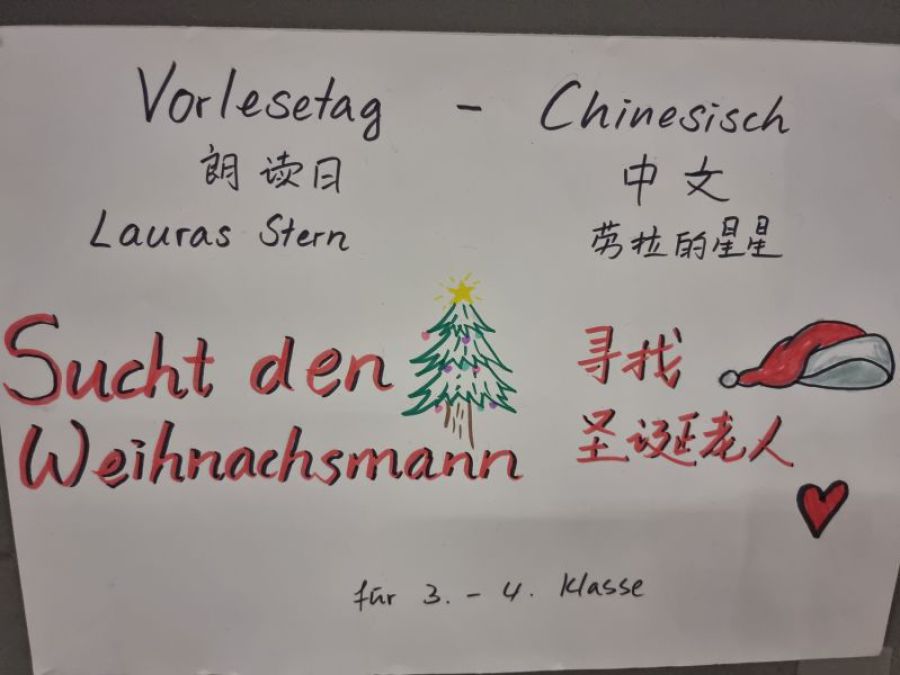 Vorlesetag - Chinesisch
朗读日 中文
Lauras Stern 劳拉的星星
Sucht den 寻找
Weihnachsmann 圣诞老人
für 3. - 4. Klasse